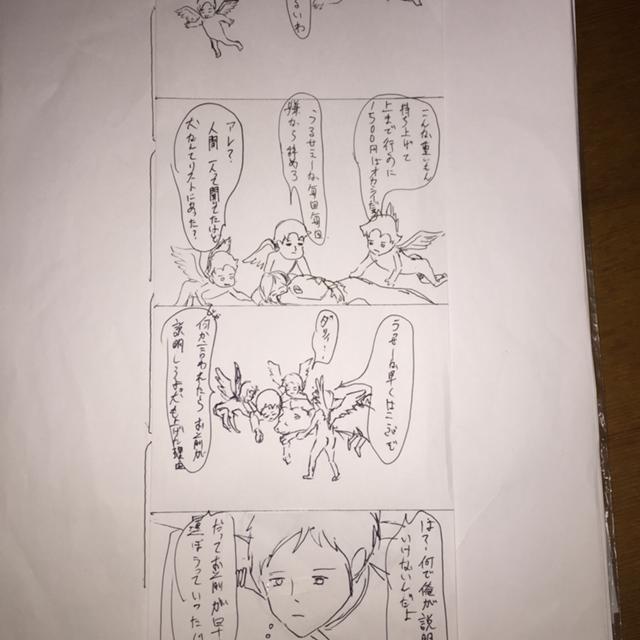 るいわ
こんな重いもん
持ち上げて
上まで行のに
1500円はオカシイだろ
うるせェーな毎回毎回
嫌なら辞めろ
アレ?
人間一人って聞いてたけど
犬なんてリストにあった?
うっせーな早くはこぶぞ
ダリィ…
何か言われたら お前が
説明しろよ 犬も上げた理由
は?何で俺が説明
いけないんだよ
だってお前が早
運ぼうっていった